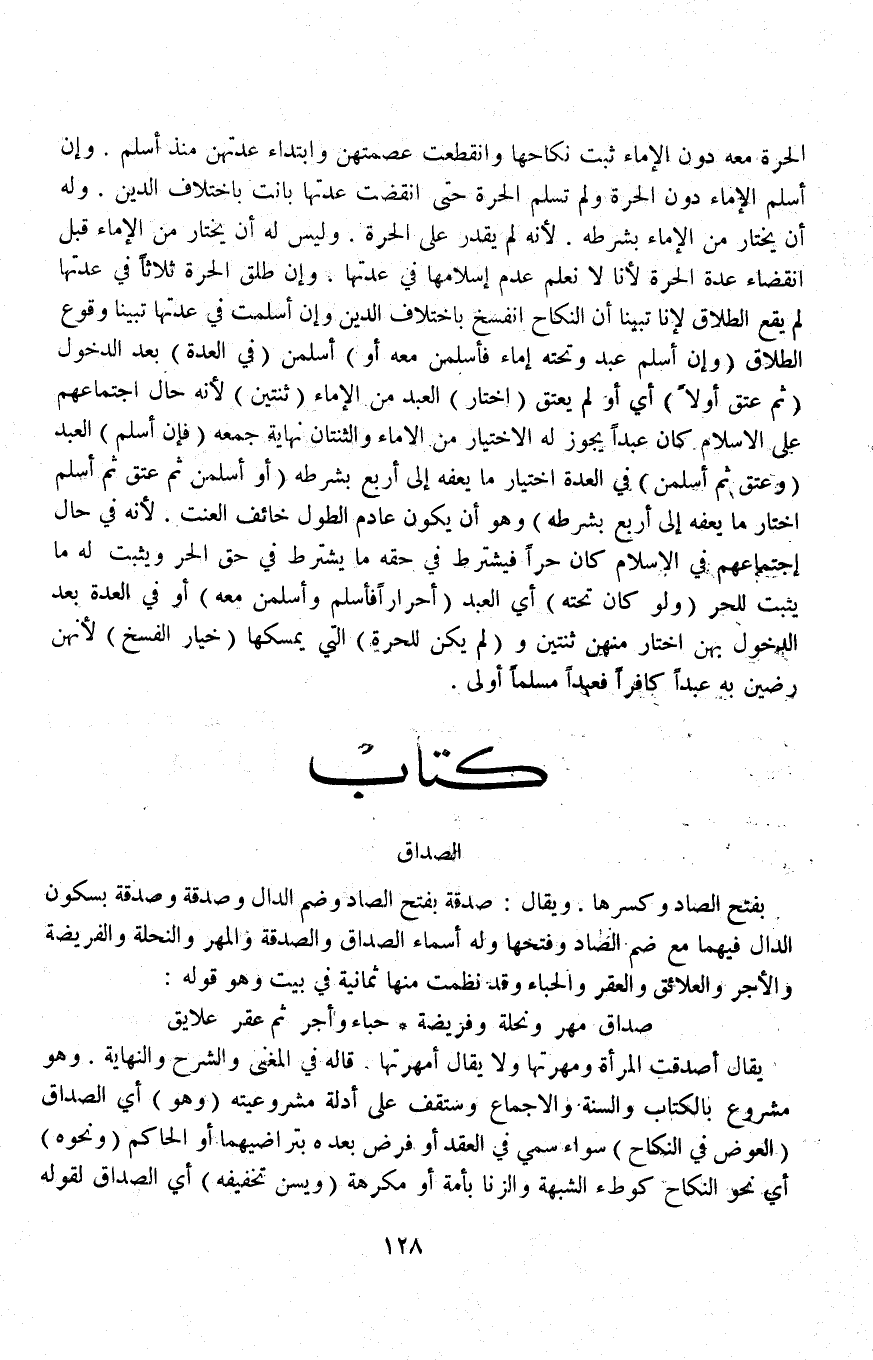 الحرة معه دون الإماء ثبت نكاحها وانقطعت عصمتهن وابتداء عدتهن منذ أسلم . وإن
أسلم الإماء دون الحرة ولم تسلم الحرة حتى انقضت عدتها بانت باختلاف الدين . وله
أن يختار من الإماء بشرطه . لأنه لم يقدر على الحرة . وليس له أن يختار من الإماء قبل
انقضاء عدة الحرة لأنا لا نعلم عدم إسلامها في عدتها . وإن طلق الحرة ثلاثاً في عدتها
لم يقع الطلاق لإنا تبينا أن النكاح انفسخ باختلاف الدين وإن أسلمت في عدتها تبينا وقوع
الطلاق ( وإن أسلم عبد وتحته إماء فأسلمن معه أو ) أسلمن ( في العدة ) بعد الدخول
( ثم عتق أولاً ) أي أو لم يعتق ( اختار ) العبد من الإماء ( ثنتين ) لأنه حال اجتماعهم
على الاسلام كان عبداً يجوز له الاختيار من الاماء والثنتان نهاية جمعه ( فإن أسلم ) العبد
( وعتق ثم أسلمن ) في العدة اختيار ما يعفه إلى أربع بشرطه ( أو أسلمن ثم عتق ثم أسلم
اختار ما يعفه إلى أربع بشرطه ) وهو أن يكون عادم الطول خائف العنت . لأنه في حال
إجتماعهم في الإسلام كان حراً فيشترط في حقه ما يشترط في حق الحر ويثبت له ما
يثبت للحر ( ولو كان تحته ) أي العبد ( أحراراً فأسلم وأسلمن معه ) أو في العدة بعد
الدخول بهن اختار منهن ثنتين و ( لم يكن للحرة ) التي يمسكها ( خيار الفسخ ) لأنهن
رضين به عبداً كافراً فعبداً مسلماً أولى .
كتاب
الصداق
بفتح الصاد وكسرها . ويقال : صدقة بفتح الصاد وضم الدال وصدقة وصدقة بسكون
الدال فيهما مع ضم الصاد وفتحها وله أسماء الصداق والصدقة والمهر والنحلة والفريضة
والأجر والعلائق والعقر والحباء وقد نظمت منها ثمانية في بيت وهو قوله :
صداق مهر ونحلة وفريضة * حباء وأجر ثم عقر علايق
يقال أصدقت المرأة ومهرتها ولا يقال أمهرتها . قاله في المغني والشرح والنهاية . وهو
مشروع بالكتاب والسنة والاجماع وستقف على أدلة مشروعيته ( وهو ) أي الصداق
( العوض في النكاح ) سواء سمي في العقد أو فرض بعده بتراضيهما أو الحاكم ( ونحوه )
أي نحو النكاح كوطء الشبهة والزنا بأمة أو مكرهة ( ويسن تخفيفه ) أي الصداق لقوله
١٢٨